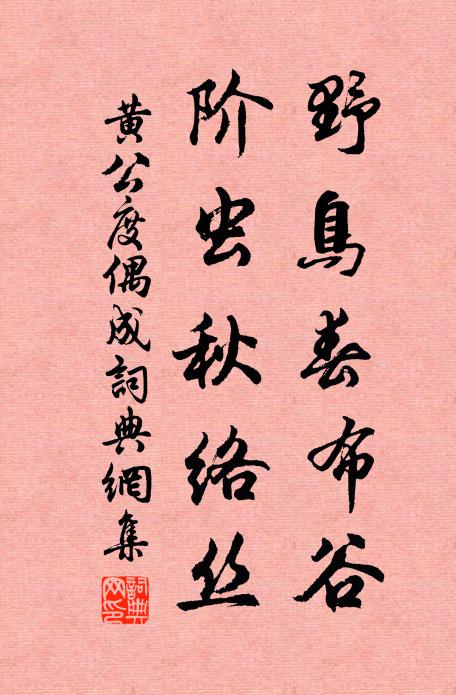 野鳥春布谷
阶虫秋络丝
黄公度偶成詞典網集
詞典網印